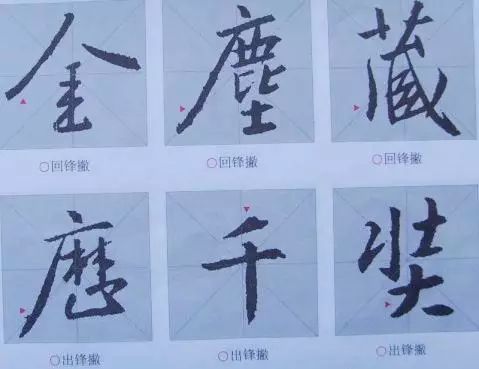 金 塵 藏
回锋撇 回锋撇 回锋撇
歷 千 奘
出锋撇 出锋撇 出锋撇